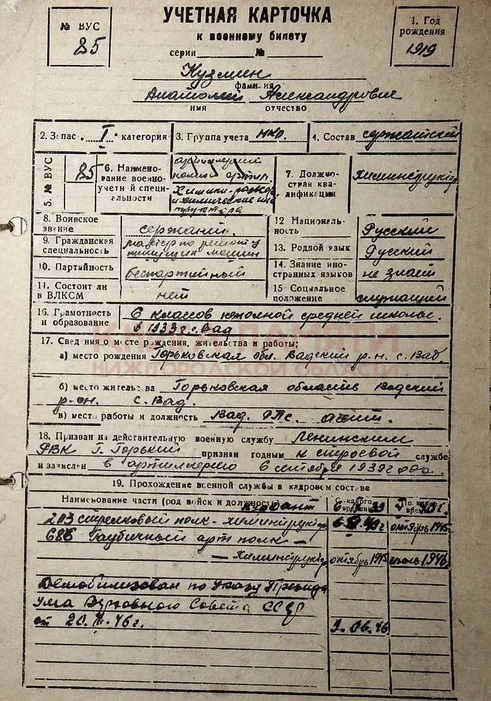 УЧЕТНАЯ КАРТОЧКА
к военному билету
серии № 
№ ВУС
85
1. Год рождения
1919
Кузмин
фамилия
Анатолий Александрович
имя отчество
2. Запас I категории
3. Группа учета НКО
4. Состав сержантский
5. № ВУС 85
6. Наименование военно-учетной специальности
7. Должностная квалификация
химинструктор
8. Воинское звание сержант
9. Гражданская специальность
машин
10. Партийность беспартийный
11. Состоит ли в ВЛКСМ нет
12 Национальность Русский
13. Родной язык Русский
14. Знание иностранных языков не знает
15 Социальное положение служащий
16. Грамотность и образование 6 классов неполной средней школы
в 1933 г. с. Вад
КНИГА ПАМЯТИ
НИЖЕГОРОДСКОЙ ОБЛАСТИ
17. Сведения о месте рождения, жительства и работы:
а) место рождения Горьковская обл. Вадский р-н. с. Вад
б) место жительства Горьковская область Вадский
р-он. с. Вад.
в) место работы и должность Вад.
18. Призван на действительную военную службу Ленинским
РВК г. Горький признан годным к строевой службе
и зачислен в артиллерию 6 сентября 1939 года
19. Прохождение военной службы в кадровом составе
Наименование части (род войск и должность)
С какого времени
По какое время
курсант
стрелковый полк - химинструктор октябрь 1945
Гаубичный арт полк -
- химинструктор октябрь 1945 1946
Демобилизован по Указу Президи
ума Верховного Совета СССР
от 20.III-46г. 9.06.46